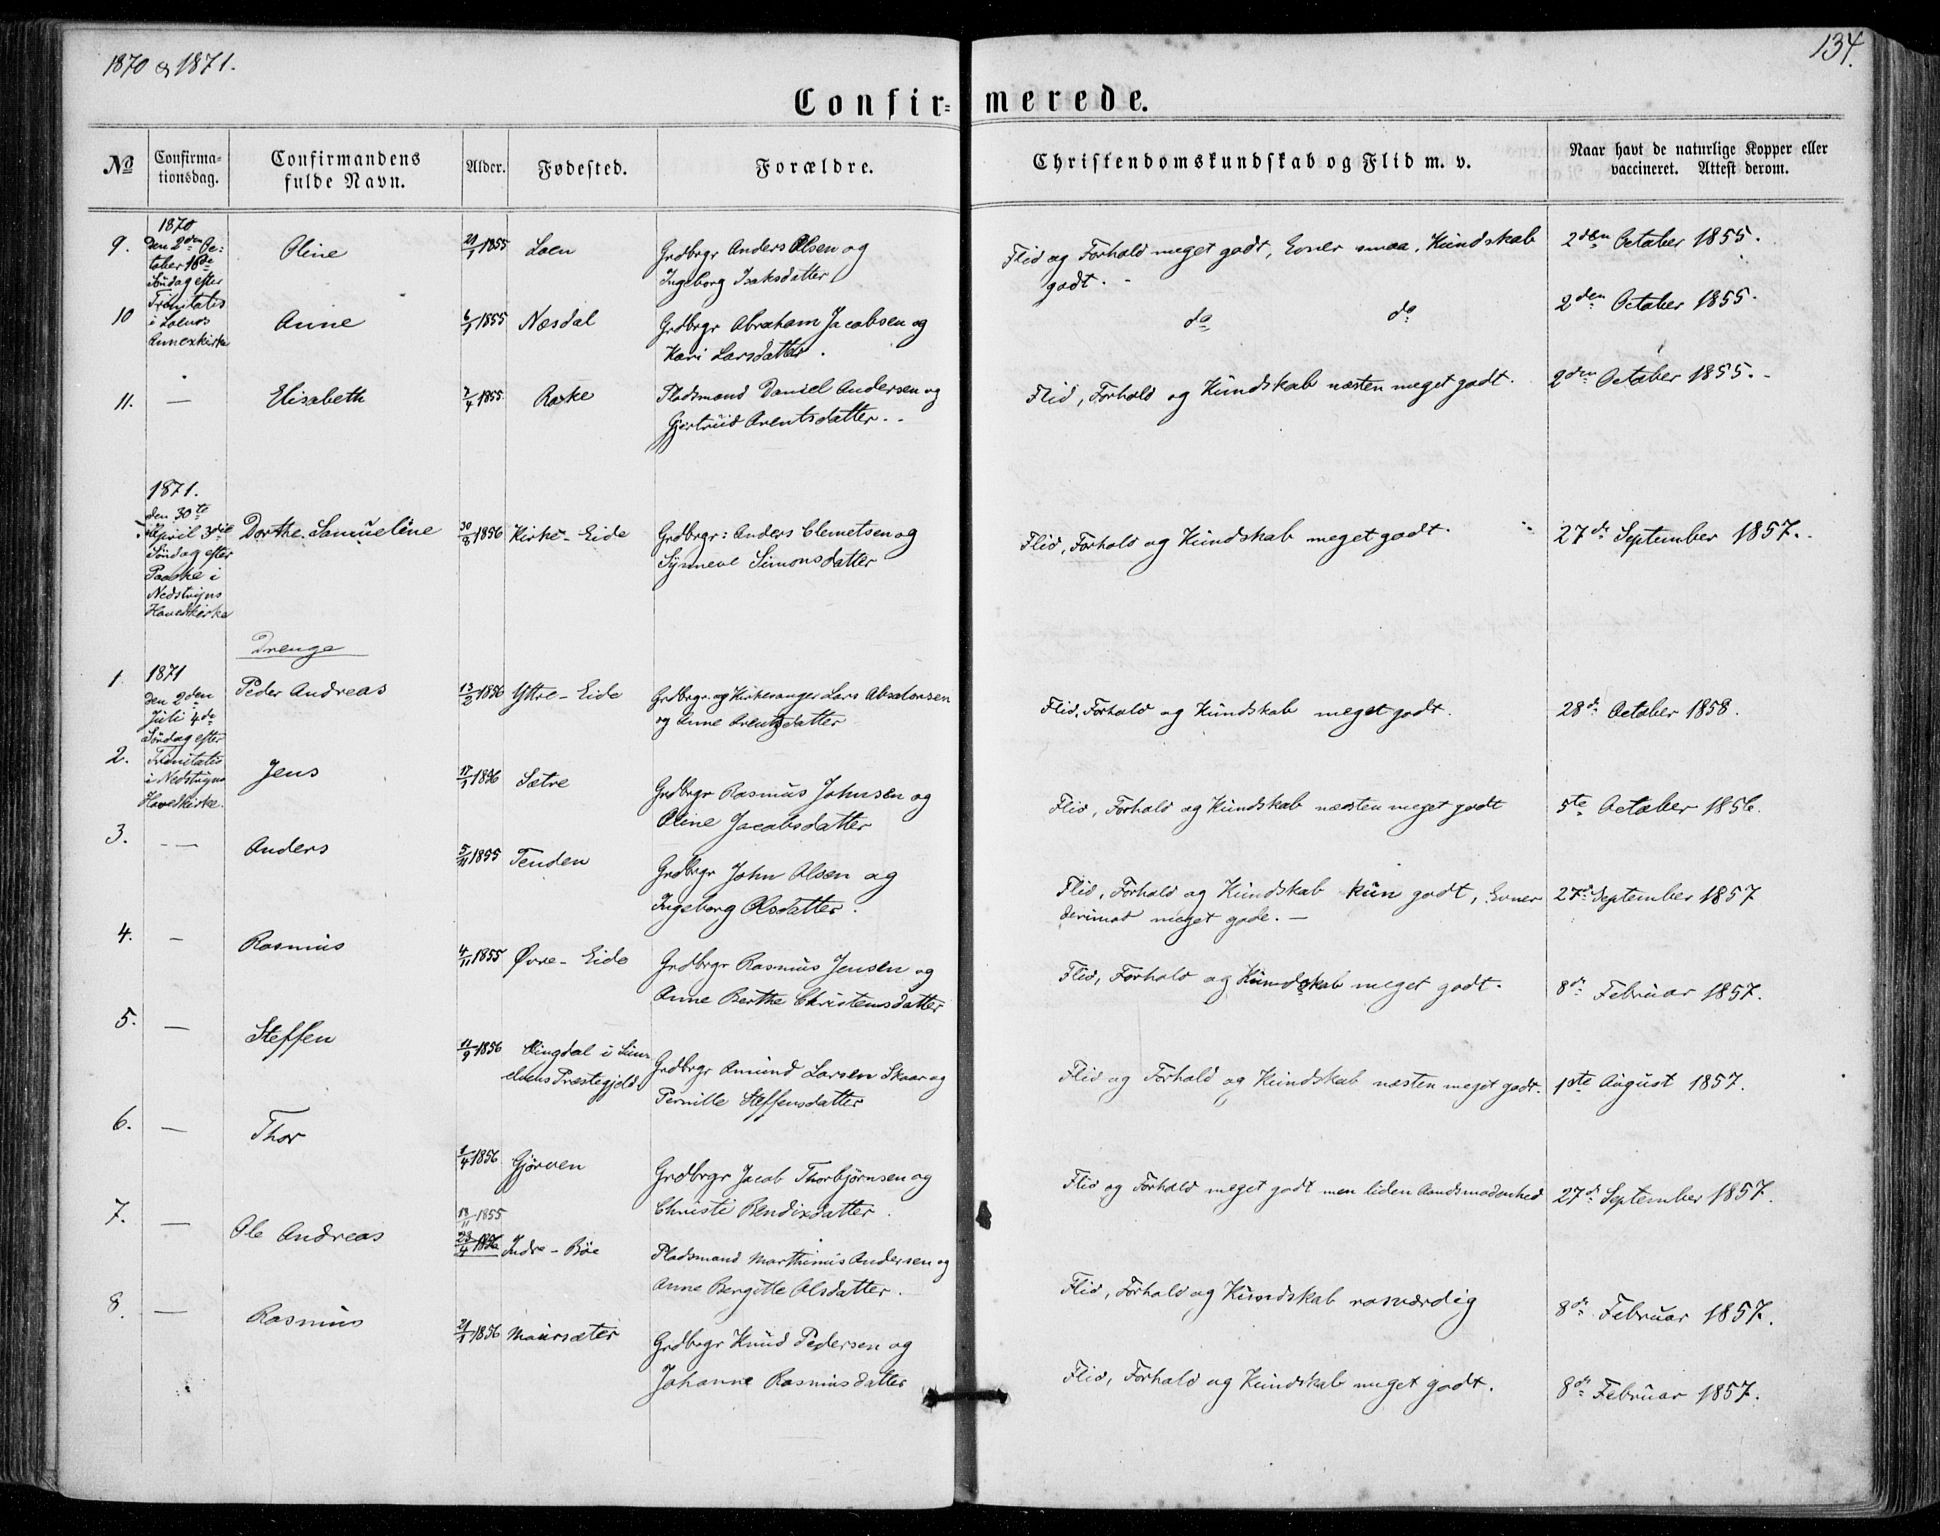 1870 & 1871.
134.
Confir= merede.
No
Confirma-
tionsdag.
Confirmandens
fulde Navn.
Alder.
Fødested.
Forældre.
Christendomskundskab og Flid m. v.
Naar havt de naturlige Kopper eller
vaccineret. Attest derom.
9.
1870
Den 2den Oc:
tober 16de
Søndag efter
Trinitatis
i Loens
Annexkirke
Oline
21/1 1855
Loen
Grdbrgr Anders Olsen og
Ingeborg Isaksdatter
Flid og Forhold meget godt, Evner smaa, Kundskab
godt.
2den October 1855.
10
Anne
1855
Næsdal
Grdbrgr Abraham Jacobsen og
Kari Larsdatter.
do do
2den October 1855.
11. —
Elisabeth
1855
Rake
Pladsmand Daniel Andersen og
Gjertrud Arentsdatter.
Flid, Forhold og Kundskab næsten meget godt.
2den October 1855.
1871.
den 30te
April 3die
Søndag efter
Paaske i
Nedstryns
Hovedkirke
Dorthe Samueline
30/8 1856
Kirke-Eide
Grdbrgr: Anders Clemetsen og
Synneve Simonsdatter
Flid, Forhold og Kundskab meget godt.
27de September 1857.
Drenge
1
1871
Den 2den
Juli 4de
Søndag efter
Trinitatis
i Nedstryns
Hovedkirke.
Peder Andreas
13/2 1856
Yttre-Eide
Grdbrgr. og Kirkesanger Lars Absalonsen
og Anne Arentsdatter
Flid, Forhold og Kundskab meget godt.
28de October 1858.
2.
Jens
17/1 1856
Sætre
Grdbrgr Rasmus Johnsen og
Oline Jacobsdatter
Flid, Forhold og Kundskab næsten meget godt
5te October 1856.
3. —
Anders
5/11 1855
Tenden
Grdbrgr John Olsen og
Ingeborg Olsdatter.
Flid, Forhold og Kundskab kun godt, Evner
derimod meget gode. —
27de September 1857
4. —
Rasmus
4/11 1855
Øvre-Eide
Grdbrgr Rasmus Jensen og
Anne Berthe Christensdatter
Flid, Forhold og Kundskab meget godt.
8de Februar 1857.
5. —
Steffen
11/9 1856
i
Præstegjeld
Grdbrgr Amund Larsen Skaar og
Pernille Steffensdatter
Flid og Forhold og Kundskab næsten meget godt.
1ste August 1857.
6. —
Thor
1856
Gjørven
Grdbrgr Jacob Thorbjørnsen og
Christi Bendixdatter.
Flid og Forhold meget godt men liden Aandsmodenhed
27de September 1857.
7. —
Ole Andreas
13/11 1855
23/4 1856
Indre-Bøe
Pladsmand Marthinus Andersen og
Anne Bergitte Olsdatter.
Flid, Forhold og Kundskab rosværdig
8de Februar 1857.
8 —
Rasmus
21/1 1856
Maursæter
Grdbrgr Knud Pedersen og
Johanne Rasmusdatter
Flid, Forhold og Kundskab meget godt.
8de Februar 1857.